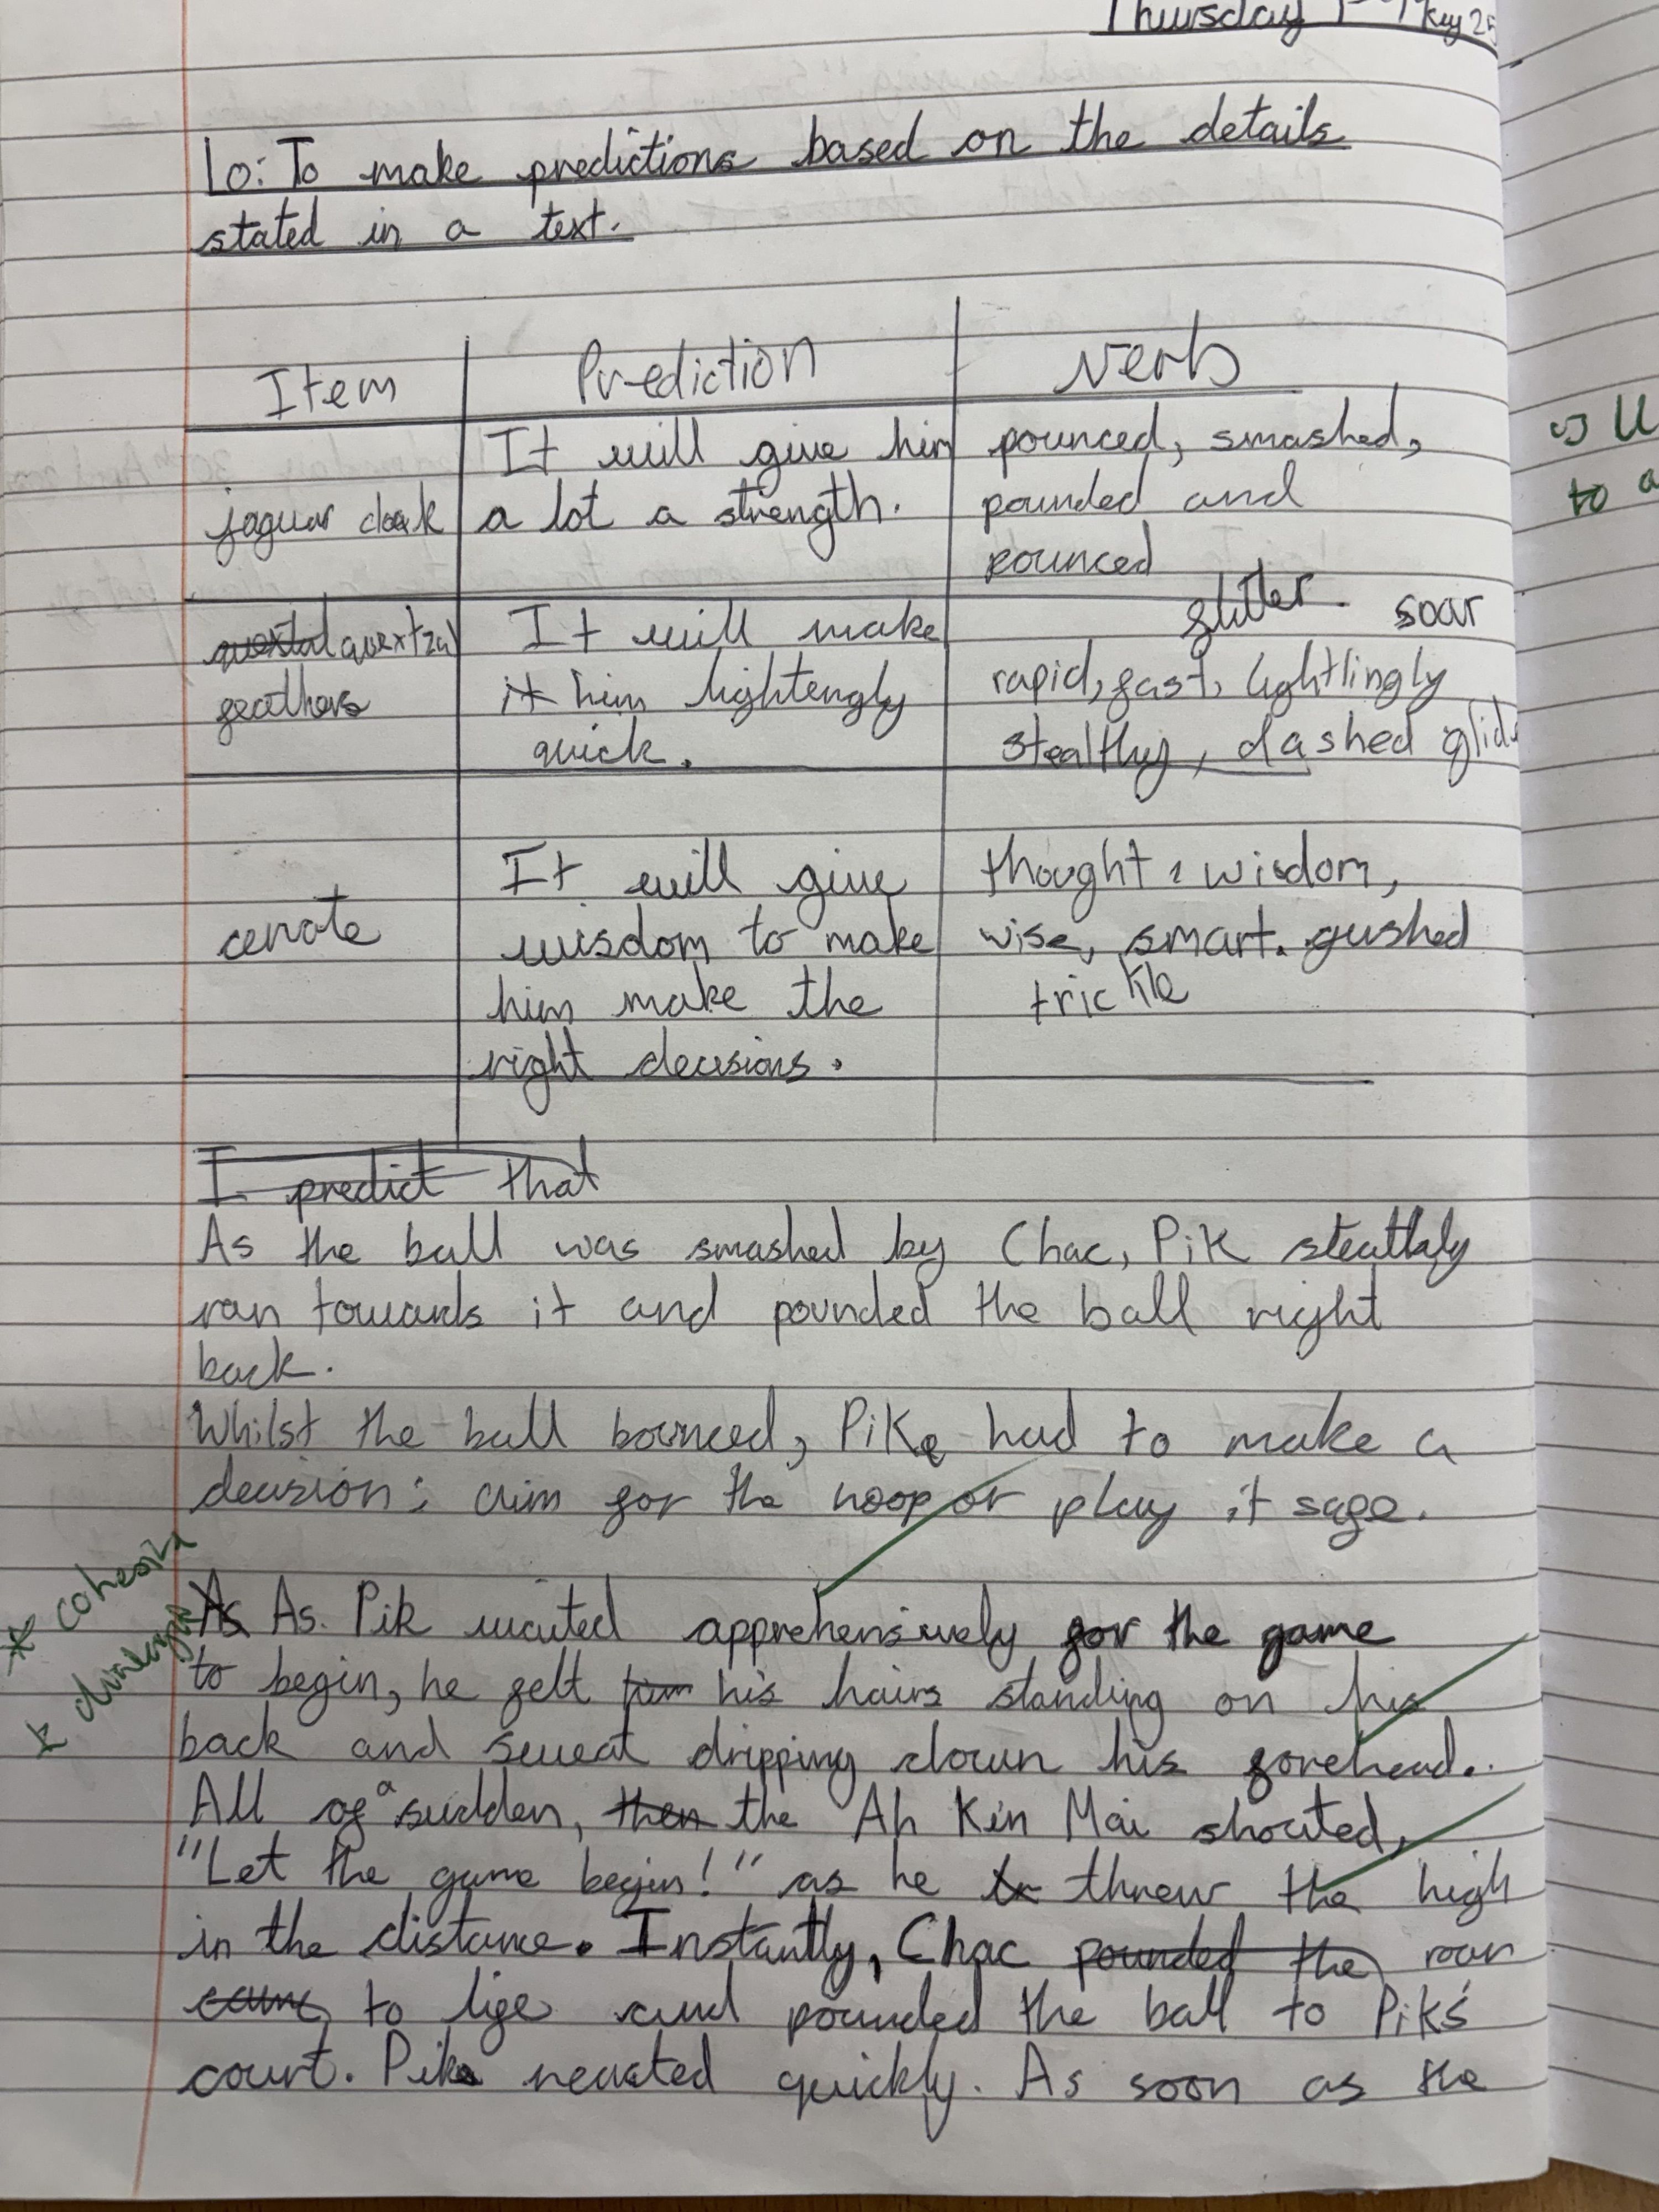 Thursday 1st May 25
Lo: To make predictions based on the details
stated in a text.
Item
Prediction
Verb
jaguar cloak
It will give him
a lot a strength.
pounced, smashed,
pounded and
pounced
quextzal
feathers
It will make
it him lightengly
quick.
glitter. soar
rapid, fast, lightlingly
stealthy, dashed glide
cenote
It will give
wisdom to make
him make the
right decisions.
thought, wisdom,
wise, smart. gushed
trickle
I predict that
As the ball was smashed by Chac, Pik
ran towards it and pounded the ball right
back.
Whilst the ball bounced, Pik had to make a
decision: aim for the hoop or play it safe.
* cohesion
* dialogue
As As Pik waited apprehensively for the game
to begin, he felt him his hairs standing on his
back and sweat dripping down his forehead..
All of a sudden, then the Ah Kin Mai shouted,
"Let the game begin!" as he threw the high
in the distance. Instantly, Chac pounded the roar
came to life and pounded the ball to Pik's
court. Pik reacted quickly. As soon as the
to a